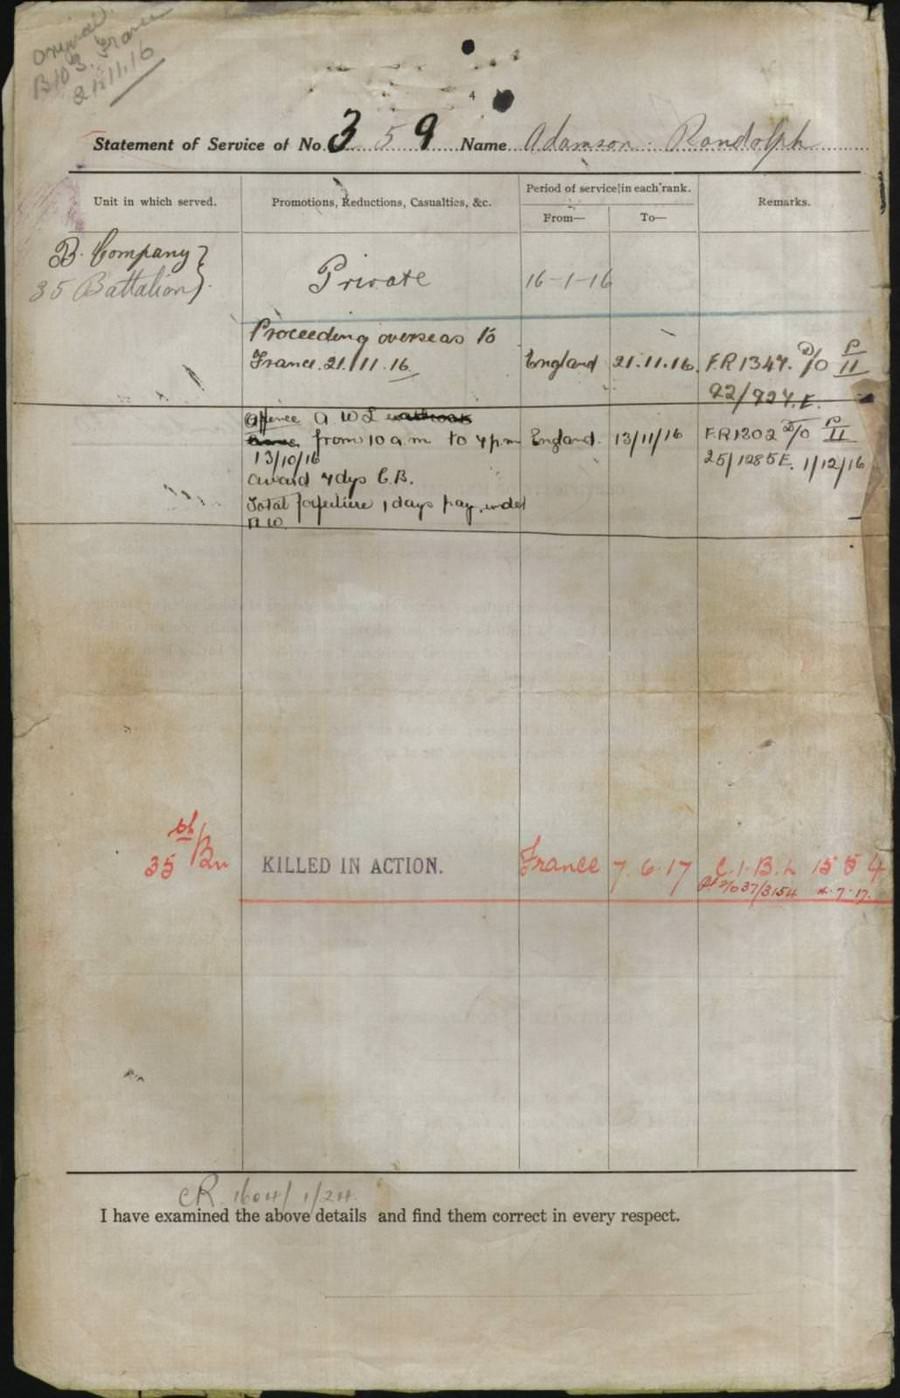 Original
B103. France
21.11.16
4
Statement of Service of No. 359 Name Adamson Randolph
Unit in which served.
Promotions, Reductions, Casualties, &c.
Period of service in each rank.
From—
To—
Remarks.
B. Company }
35 Battalion }
Private
16-1-16
Proceeding overseas to
France. 21/11.16
England
21.11.16.
F.R 1347. D/O P/II
92/924.E.
Offence A W L
from 10 a m to 4 p.m
13/10/16
award 7dys C.B.
Total forfeiture 1 days pay under
R.W.
England.
13/11/16
F.R 1302 D/O P/II
25/1285E. 1/12/16
35th Bn
KILLED IN ACTION.
France
7.6.17
C.1.B.L 1554
37/3154 4.7.17.
CR. 1604/ 1/24
I have examined the above details and find them correct in every respect.